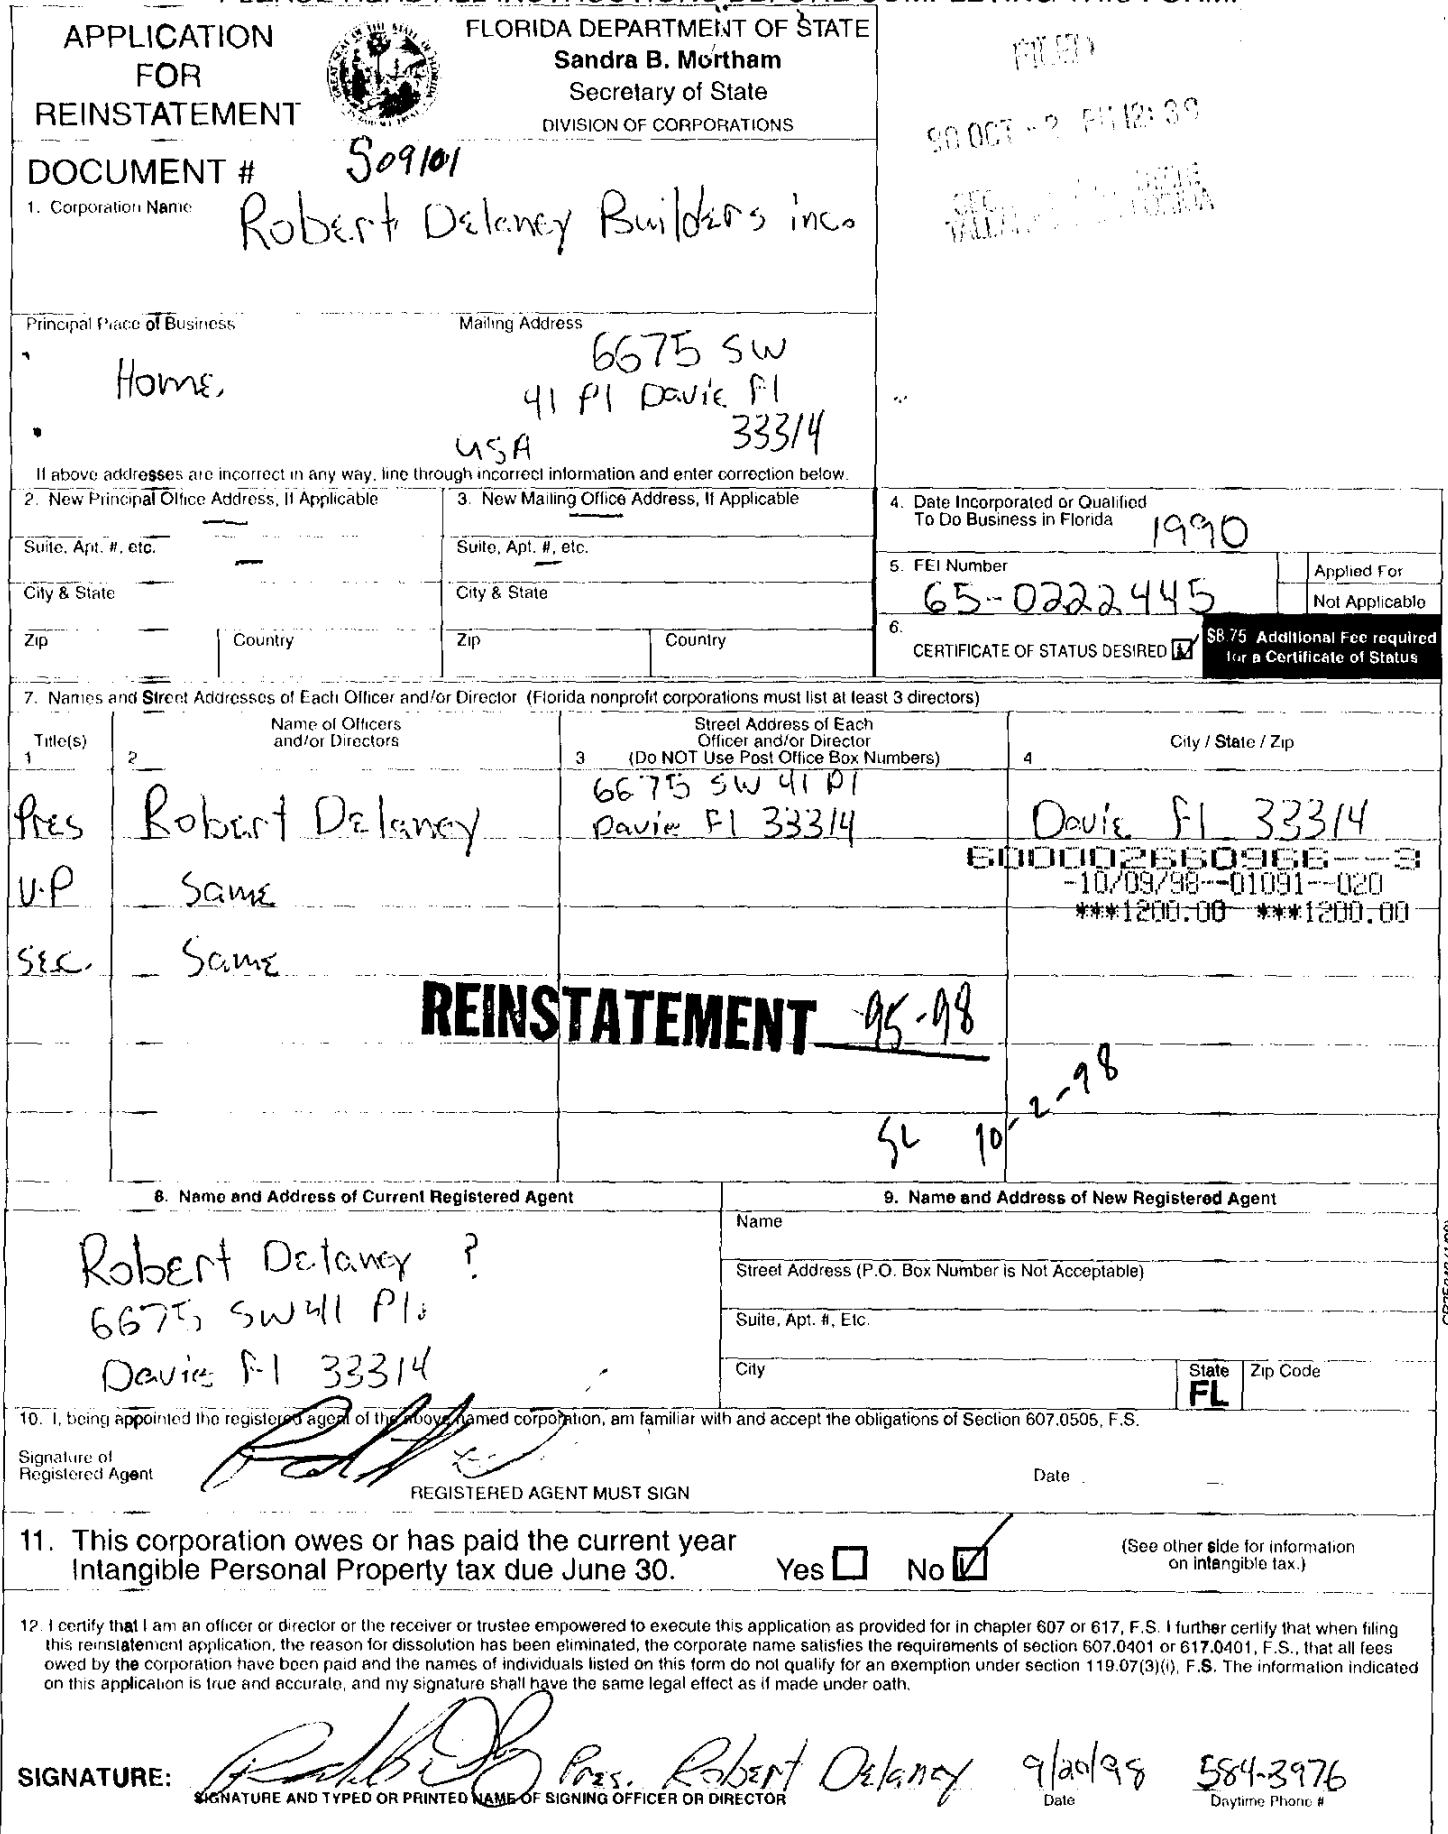 PLEASE READ ALL INSTRUCTIONS BEFORE COMPLETING THIS FORM.
APPLICATION
FOR
REINSTATEMENT
FLORIDA DEPARTMENT OF STATE
Sandra B. Mortham
Secretary of State
DIVISION OF CORPORATIONS
FILED
98 OCT -2 PM 12:39
DOCUMENT # S09101
1. Corporation Name
Robert Delaney Builders inc.
Principal Place of Business
Home.
Mailing Address
6675 SW
41 Pl Davie Fl
33314
USA
If above addresses are incorrect in any way, line through incorrect information and enter correction below.
2. New Principal Office Address, If Applicable
Suite, Apt. #, etc.
City & State
Zip Country
3. New Mailing Office Address, If Applicable
Suite, Apt. #, etc.
City & State
Zip Country
4. Date Incorporated or Qualified
To Do Business in Florida 1990
5. FEI Number
65-0222445
Applied For
Not Applicable
6.
CERTIFICATE OF STATUS DESIRED
$8.75 Additional Fee required
for a Certificate of Status
7. Names and Street Addresses of Each Officer and/or Director (Florida nonprofit corporations must list at least 3 directors)
Title(s)
1
Name of Officers
and/or Directors
2
Street Address of Each
Officer and/or Director
3 (Do NOT Use Post Office Box Numbers)
City / State / Zip
4
Pres Robert Delaney
6675 SW 41 Pl
Davie Fl 33314
Davie Fl 33314
600002660966---3
-10/09/98--01091--020
***1200.00 ***1200.00
V.P Same
Sec. Same
REINSTATEMENT 95-98
SL 10-2-98
8. Name and Address of Current Registered Agent
Robert Delaney ?
6675 SW 41 Pl.
Davie Fl 33314
9. Name and Address of New Registered Agent
Name
Street Address (P.O. Box Number is Not Acceptable)
Suite, Apt. #, Etc.
City
State
FL
Zip Code
10. I, being appointed the registered agent of the above named corporation, am familiar with and accept the obligations of Section 607.0505, F.S.
Signature of
Registered Agent
REGISTERED AGENT MUST SIGN
Date
11. This corporation owes or has paid the current year
Intangible Personal Property tax due June 30.
Yes No
(See other side for information
on intangible tax.)
12. I certify that I am an officer or director or the receiver or trustee empowered to execute this application as provided for in chapter 607 or 617, F.S. I further certify that when filing
this reinstatement application, the reason for dissolution has been eliminated, the corporate name satisfies the requirements of section 607.0401 or 617.0401, F.S., that all fees
owed by the corporation have been paid and the names of individuals listed on this form do not qualify for an exemption under section 119.07(3)(i), F.S. The information indicated
on this application is true and accurate, and my signature shall have the same legal effect as if made under oath.
SIGNATURE: Pres. Robert Delaney 9/20/98 584-3976
SIGNATURE AND TYPED OR PRINTED NAME OF SIGNING OFFICER OR DIRECTOR
Date
Daytime Phone #